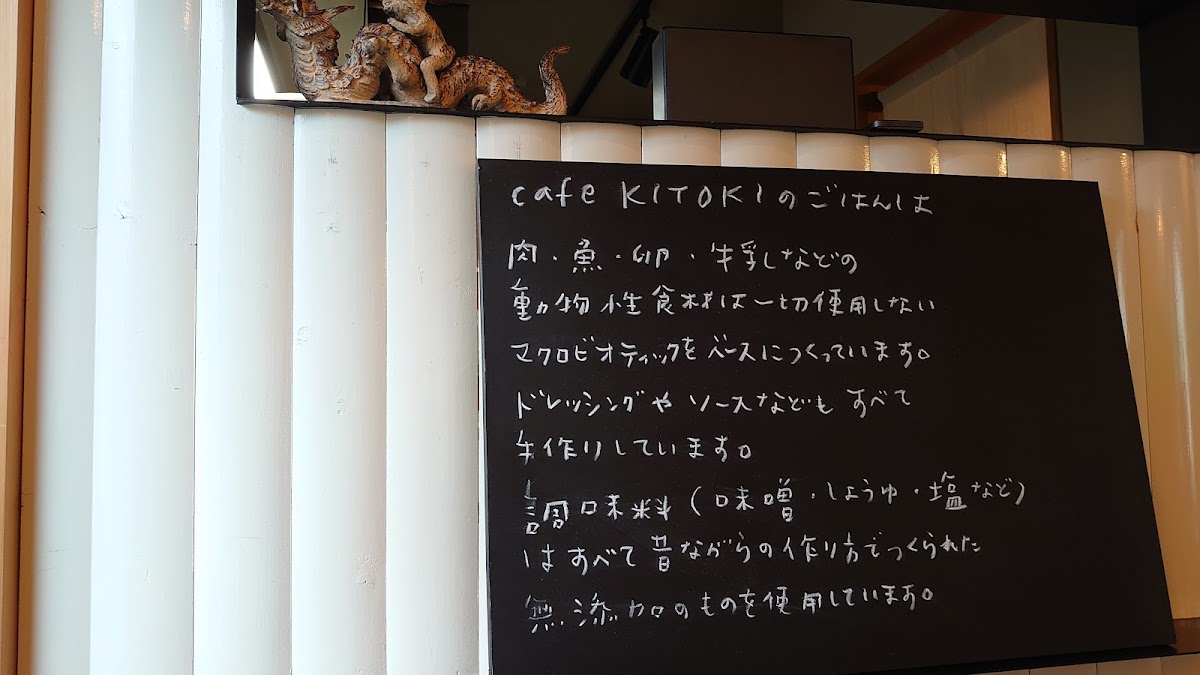 cafe KITOKIのごはんは
肉・魚・卵・牛乳しなどの
動物性食材は一切使用しない
マクロビオティックをベースにつくっています。
ドレッシングやソースなどもすべて
手作りしています。
調味料(味噌・しょうゆ・塩など)
はすべて昔ながらの作り方でつくられた
無添加のものを使用しています。